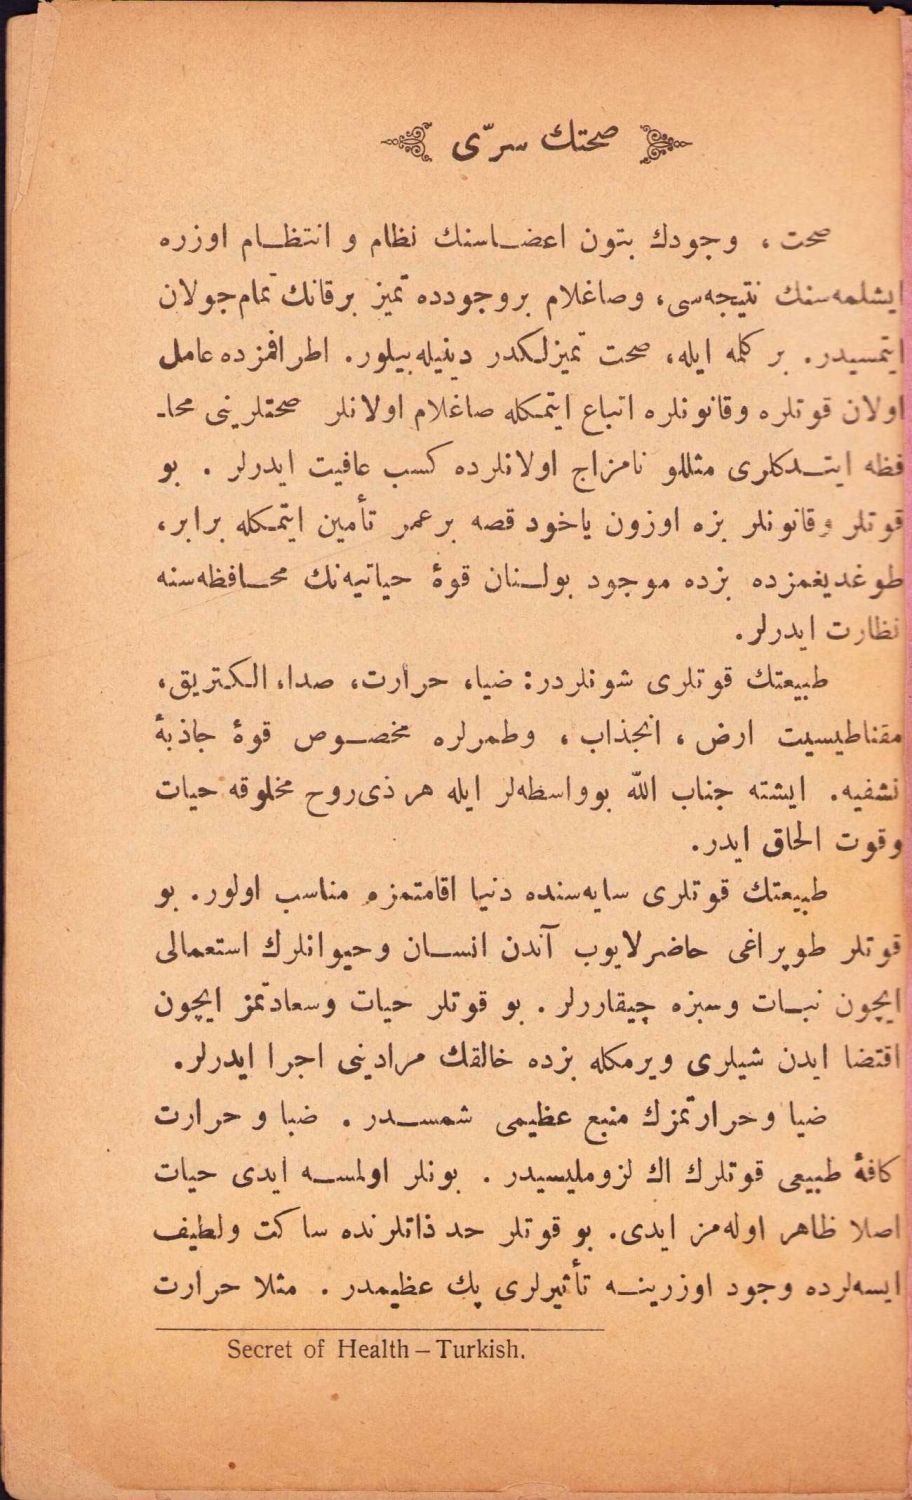 صحتك سرّى
صحت ، وجودك بتون اعضــاسنك نظام و انتظــام اوزره
ايشلمه‌سنك نتيجه‌سى، وصاغلام بروجودده تميز برقانك تمام‌جولان
ايتمسيدر. بر كلمه ايله، صحت تميزلكدر دينيله‌بيلور. اطرافمزده عامل
اولان قوتلره وقانونلره اتباع ايتمكله صاغلام اولانلر صحتلرينى محا-
فظه ايتــدكلرى مثللو نامزاج اولانلرده كسب عافيت ايدرلر . بو
قوتلر وقانونلر بزه اوزون ياخود قصه برعمر تأمين ايتمكله برابر،
طوغديغمزده بزده موجود بولــنان قوۀ حياتيه‌نك محــافظه‌سنه
نظارت ايدرلر.
طبيعتك قوتلرى شونلردر: ضيا، حرارت، صدا، الكتريق،
مقناطيسيت ارض ، انجذاب ، وطمرلره مخصــوص قوۀ جاذبۀ
نشفيه. ايشته جناب اللّه بوواسطه‌لر ايله هر ذى‌روح مخلوقه حيات
وقوت الحاق ايدر.
طبيعتك قوتلرى سايه‌سنده دنيا اقامتمزه مناسب اولور. بو
قوتلر طوپراغى حاضرلايوب آندن انســان وحيوانلرك استعمالى
ايچون نبــات وسبزه چيقاررلر . بو قوتلر حيات وسعادتمز ايچون
اقتضا ايدن شيلرى ويرمكله بزده خالقك مرادينى اجرا ايدرلر.
ضيا وحرارتمزك منبع عظيمى شمســدر . ضبا و حرارت
كافۀ طبيعى قوتلرك اك لزومليسيدر . بونلر اولمســه ايدى حيات
اصلا ظاهر اوله‌مز ايدى. بو قوتلر حد ذاتلرنده ساكت ولطيف
ايسه‌لرده وجود اوزرينــه تأثيرلرى پك عظيمدر . مثلا حرارت
Secret of Health – Turkish.